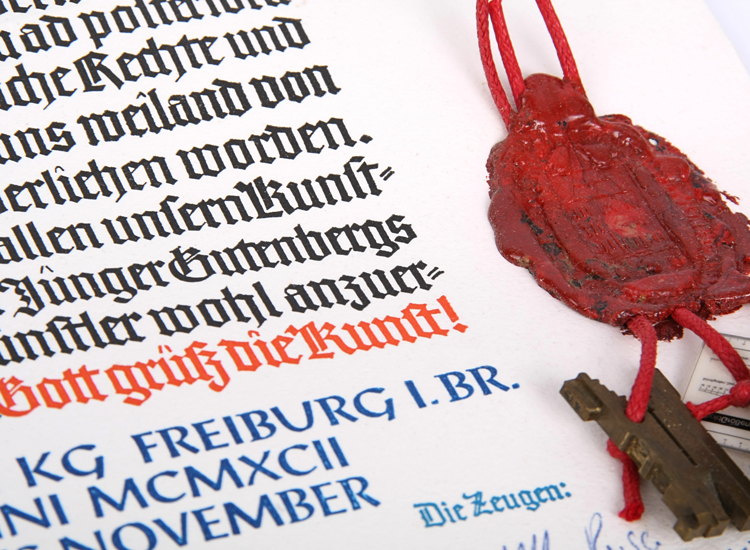 ad postulatum
che Rechte und
uns weiland von
erliehen worden.
allen unsern Kunst=
Jünger Gutenbergs
ünstler wohl anzuer=
Gott grüß die Kunst!
KG FREIBURG I. BR.
NI MCMXCII
NOVEMBER
Die Zeugen: